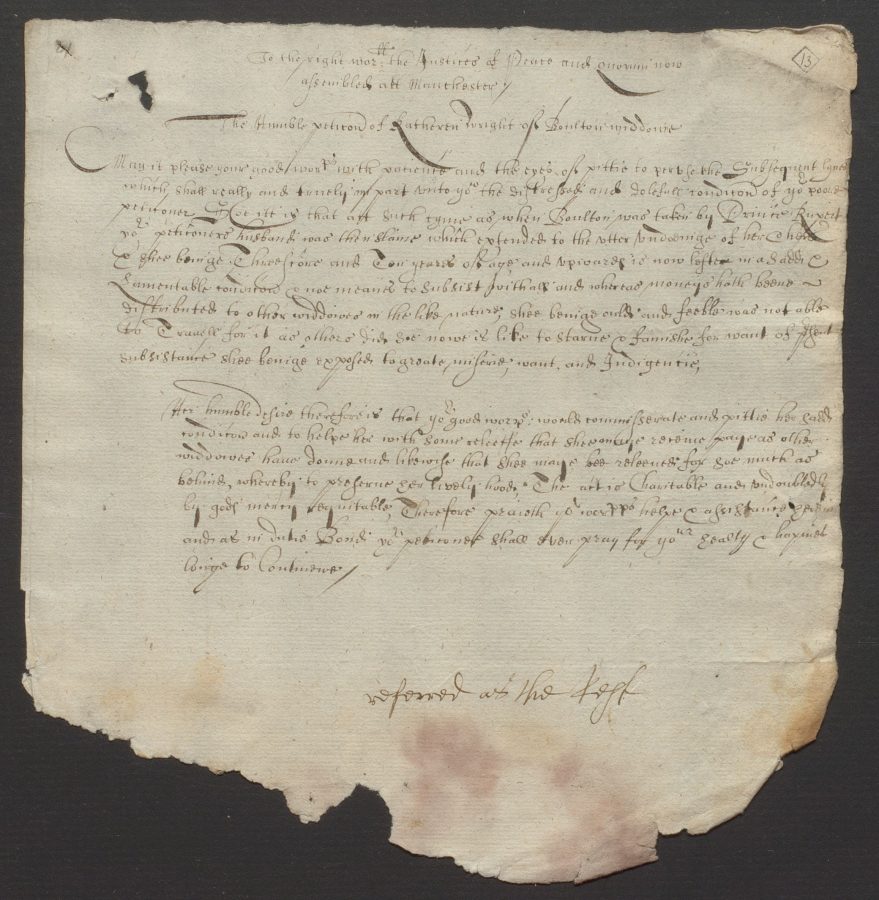 13
To the right wor:tt the Justices of Peace and Quorum now
assembled att Manchester /
The Humble peticon of Katheren Wright of Boulton widdowe
May it please your good worpps with patience and the eyes of pittie to peruse the Subsequent lynes
which shall really and truely in part unto yor the distressed and dolefull condicon of yor poore
peticoner Soe itt is that att such tyme as when Boulton was taken by Prince Rupert
yor peticoners husband was then slaine which extended to the utter undoeinge of her
& shee beinge Threescore and Ten yeares of age and upwards is now lefte in a sadd &
Lamentable condicon & noe means to subsist withall and whereas moneys hath beene
distributed to other widdowes in the like nature, shee beinge ould and feeble was not able
to Travell for it as others did, soe nowe is like to starve & famishe for want of
subsistance shee beinge exposed to greate miserie, want, and Indigencie,
Her humble desire therefore is that yor good worpps would commisserate and pittie her sadd
condicon and to helpe her with some releefe that shee maye receive paye as other
widdowes have donne and likewise that shee maye bee releeved for soe much as
behind, whereby to preserve her lively hood, The act is Charitable and undoubtedly
by gods mercy requitable, Therefore praieth yor worpps helpe & assistance herein
and as in dutie Bond yor peticoner shall ever pray for your healty & hapines
longe to Continewe /
referred as the Rest